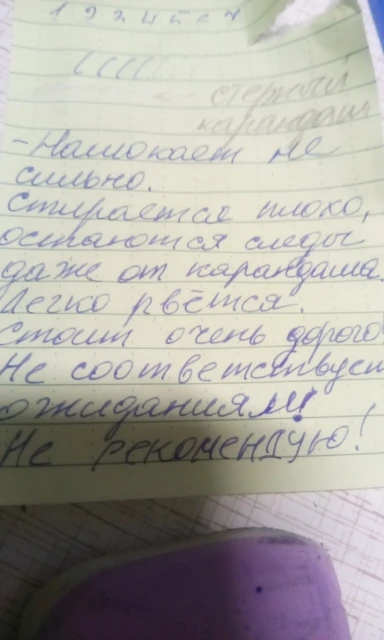 1 2 3 4 5 6 7
стертый
карандаш
-Намокает не
сильно.
Стирается плохо,
остаются следы
даже от карандаша.
Легко рвётся.
Стоит очень дорого!
Не соответствует
ожиданиям!
Не рекомендую!